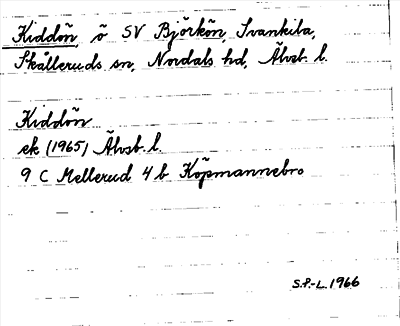 Kiddön, ö SV Björkön, Svankila,
Skålleruds sn, Nordals hd, Älvsb. l.
Kiddön
ek (1965) Älvsb. l.
9 C Mellerud 4 b Köpmannebro
S.P.-L. 1966